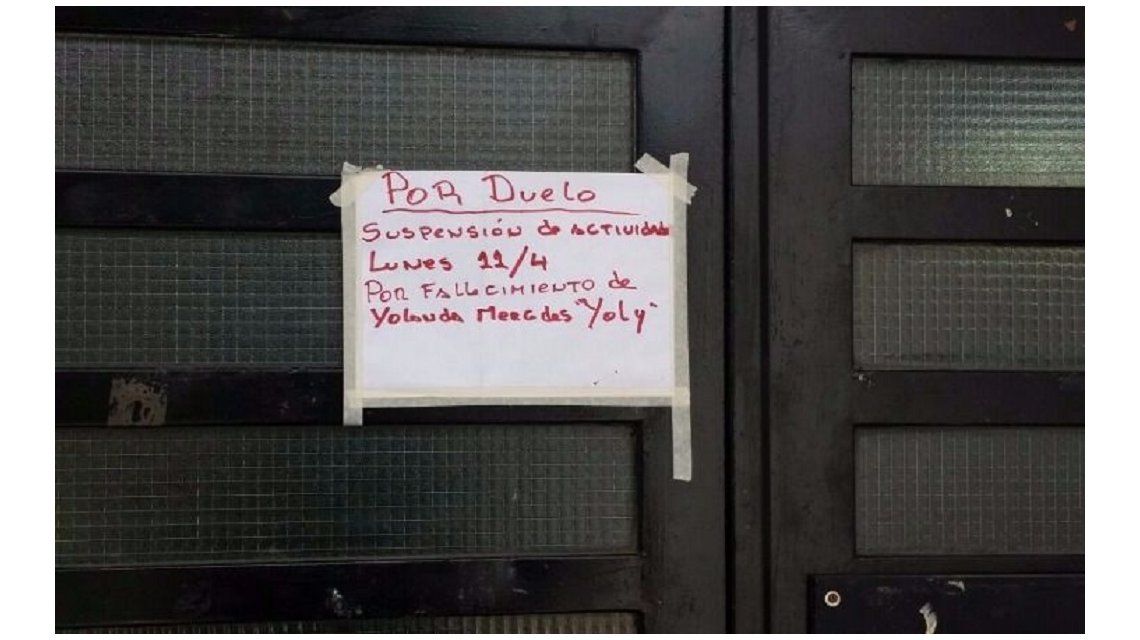 POR Duelo
SUSPENSIÓN de ACTIVIDAD
LUNES 11/4
POR FALLECIMIENTO de
Yolanda Mercedes "Yoly"